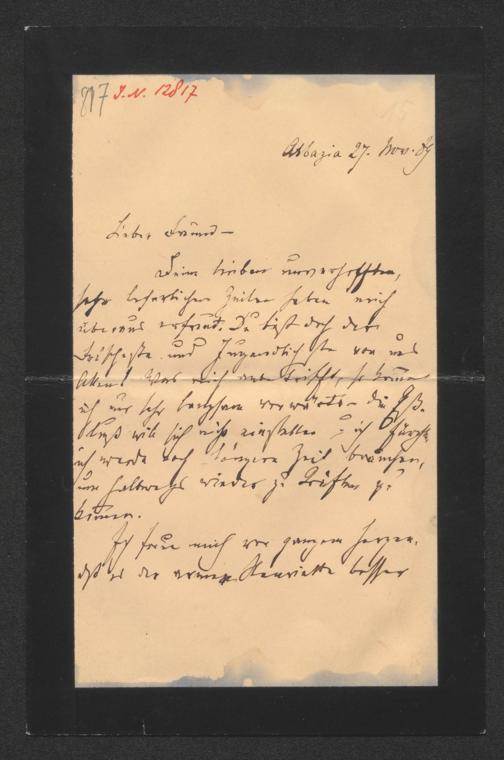 817 J.N. 12817
Abbazia 27. Nov. 89
Lieber Freund –
Deine lieben unverhofften,
sehr leserlichen Zeilen haben mich
überaus erfreut. Du bist doch der
Frischeste und Jugendlichste von uns
Allen! Was mich anbetrifft, so komme
ich nur sehr langsam vorwärts – die
will sich nicht einstellen u ich fürchte
ich werde noch längere Zeit brauchen,
um halbwegs wieder zu Kräften zu
kommen.
Ich freue mich von ganzem Herzen,
daß es der armen Henriette besser